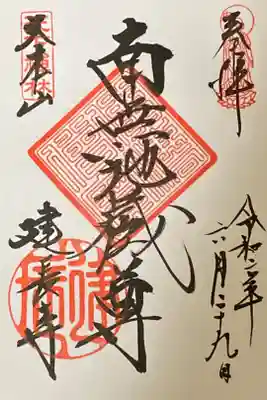 奉拝
令和二年
六月二十九日
南無地蔵尊
天下禅林
建長寺